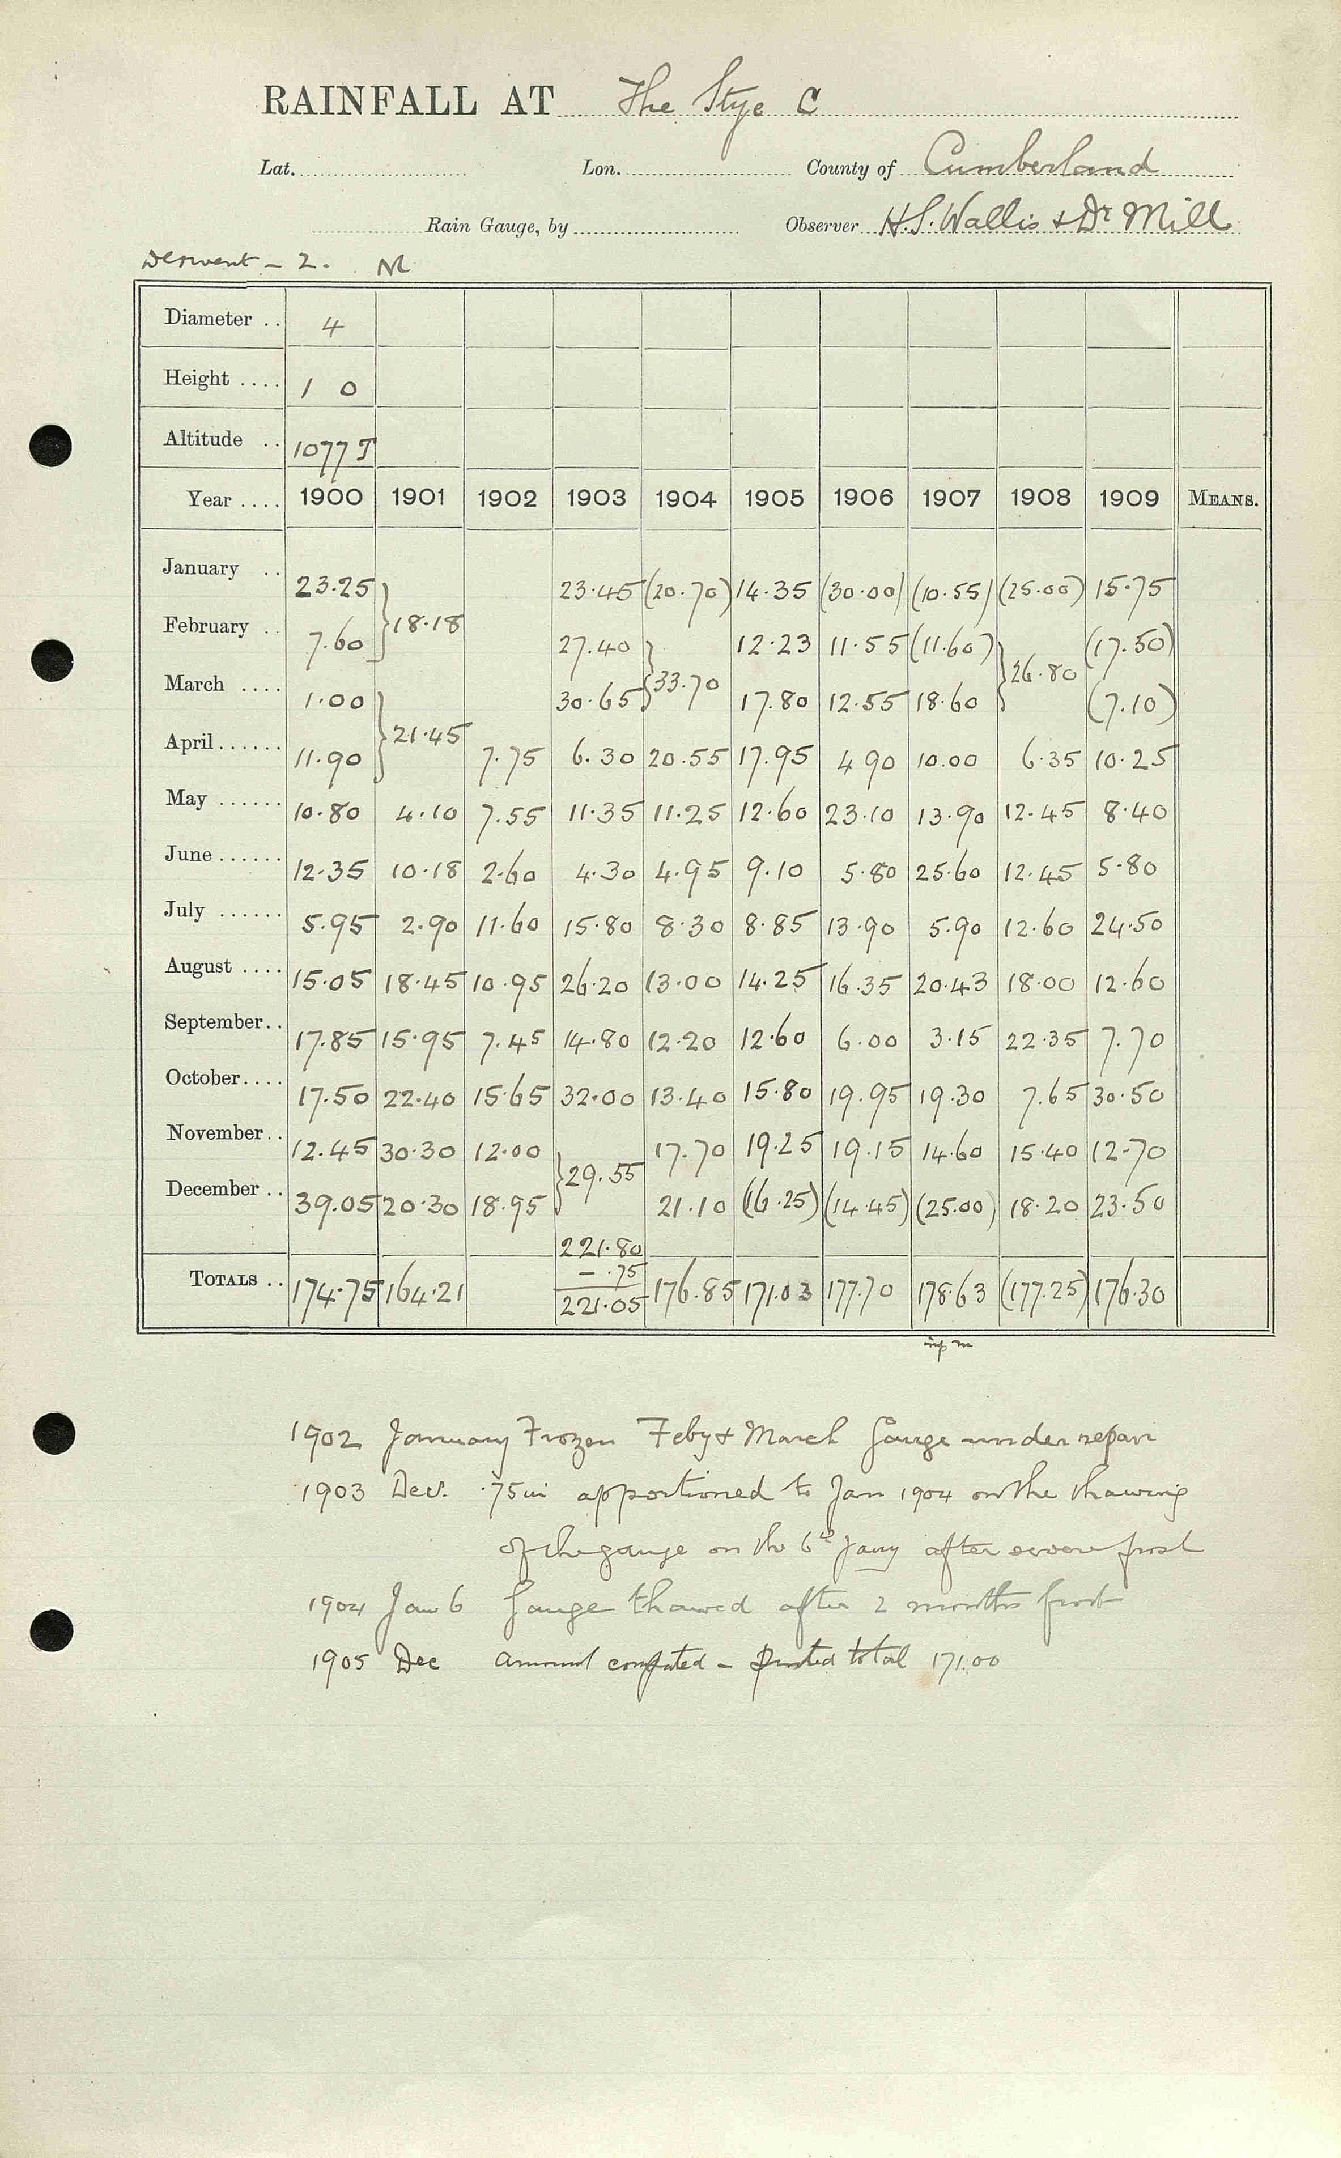 RAINFALL AT The Stye C
Lat. Lon. County of Cumberland
Rain Gauge, by Observer H.S. Wallis & Dr Mill
Derwent - 2.
Diameter .. 4
Height .... 1 0
Altitude .. 1077 T
Year .... 1900 1901 1902 1903 1904 1905 1906 1907 1908 1909 MEANS.
January .. 23.25 23.45 (20.70) 14.35 (30.00) (10.55) (25.00) 15.75
February .. 7.60 } 18.18 27.40 12.23 11.55 (11.60) (17.50)
March .... 1.00 30.65 } 33.70 17.80 12.55 18.60 } 26.80 (7.10)
April...... 11.90 } 21.45 7.75 6.30 20.55 17.95 4 90 10.00 6.35 10.25
May ...... 10.80 4.10 7.55 11.35 11.25 12.60 23.10 13.90 12.45 8.40
June ...... 12.35 10.18 2.60 4.30 4.95 9.10 5.80 25.60 12.45 5.80
July ...... 5.95 2.90 11.60 15.80 8.30 8.85 13.90 5.90 12.60 24.50
August .... 15.05 18.45 10.95 26.20 13.00 14.25 16.35 20.43 18.00 12.60
September.. 17.85 15.95 7.45 14.80 12.20 12.60 6.00 3.15 22.35 7.70
October.... 17.50 22.40 15.65 32.00 13.40 15.80 19.95 19.30 7.65 30.50
November.. 12.45 30.30 12.00 17.70 19.25 19.15 14.60 15.40 12.70
December .. 39.05 20.30 18.95 } 29.55 21.10 (16.25) (14.45) (25.00) 18.20 23.50
221.80
- .75
TOTALS .. 174.75 164.21 221.05 176.85 171.03 177.70 178.63 (177.25) 176.30
1902 January Frozen Feby & March Gauge under repair
1903 Dec. .75 in apportioned to Jan 1904 on the thawing
of the gauge on the 6th Jany after severe frost
1904 Jan 6 Gauge thawed after 2 months frost
1905 Dec Amount computed - Printed total 171.00